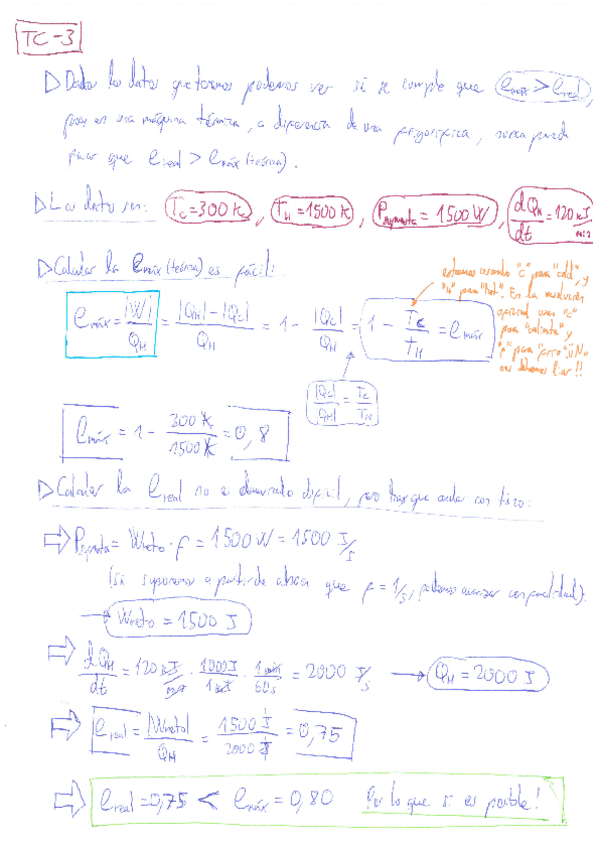 TC-3
▷ Dados los datos que tenemos podemos ver si se cumple que e_máx > e_real,
pues en una máquina térmica, a diferencia de una frigorífica, nunca puede
pasar que e_real > e_máx (teórica).
▷ Los datos son: T_c = 300 K, T_H = 1500 K, P = 1500 W, dQ_H/dt = 120 kJ/min
▷ Calcular la e_máx (teórica) es fácil:
estamos usando "c" para "cold", y
"h" para "hot". En la resolución
oficial usan "c"
para "caliente" y
"f" para "frío". ¡¡No
nos debemos liar!!
e_máx = |W|/Q_H = (|Q_H| - |Q_c|)/Q_H = 1 - |Q_c|/Q_H = 1 - T_c/T_H = e_máx
|Q_c|/|Q_H| = T_c/T_H
e_máx = 1 - 300 K/1500 K = 0,8
▷ Calcular la e_real no es demasiado difícil, pero hay que andar con tiro:
⇒ P = W_neto · f = 1500 W = 1500 J/s
(si suponemos a partir de ahora que f = 1/s, podemos avanzar con facilidad).
→ W_neto = 1500 J
⇒ dQ_H/dt = 120 kJ/min · 1000 J/1 kJ · 1 min/60 s = 2000 J/s → Q_H = 2000 J
⇒ e_real = |W_neto|/Q_H = 1500 J/2000 J = 0,75
⇒ e_real = 0,75 < e_máx = 0,80 Por lo que sí es posible!